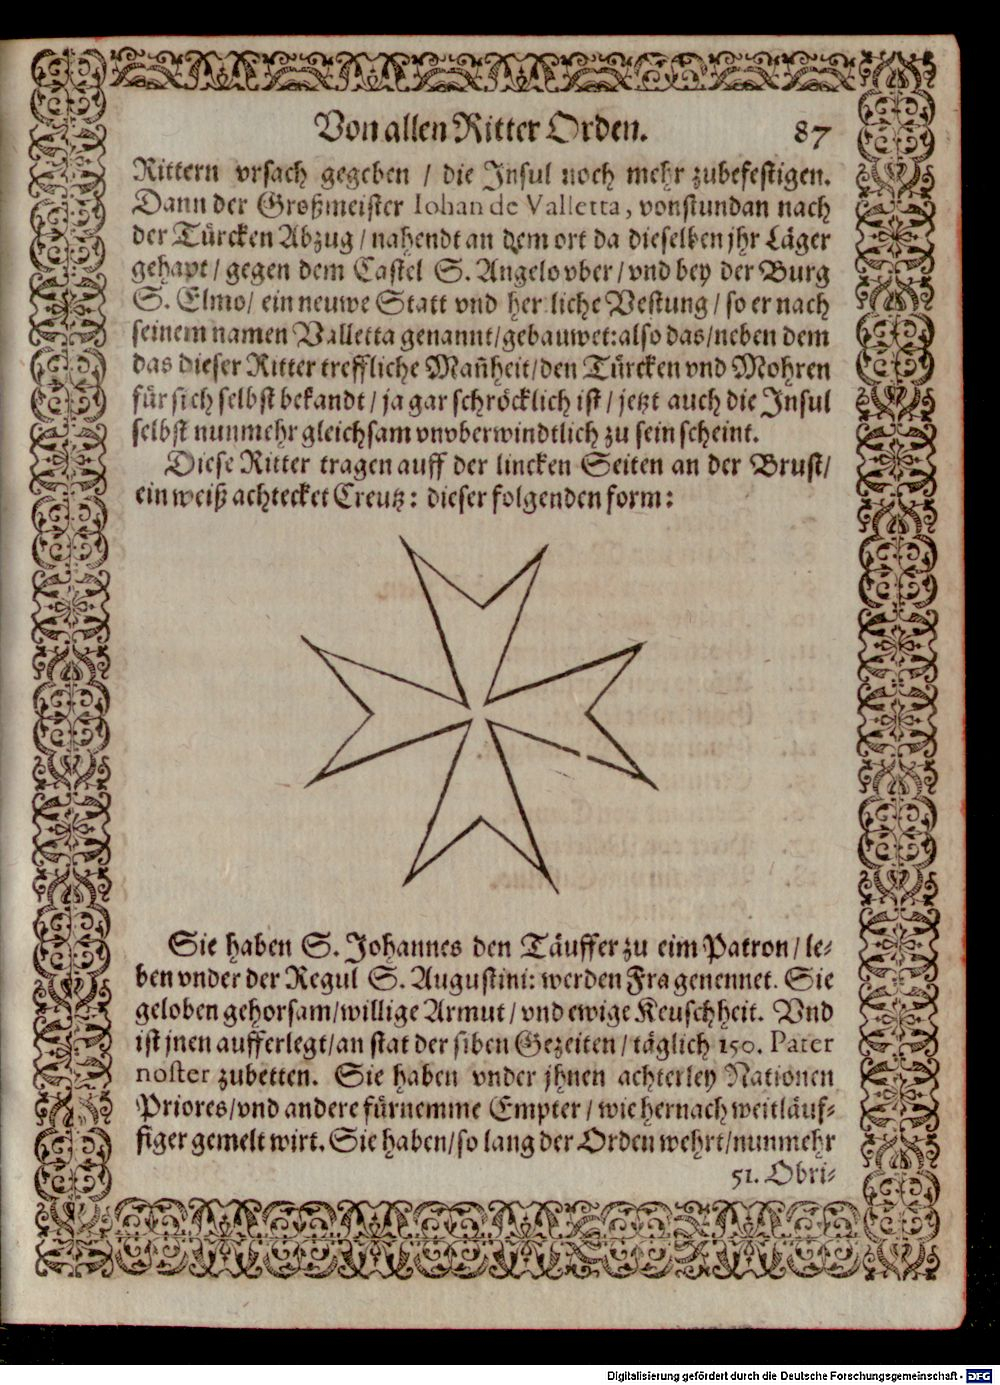 Von allen Ritter Orden. 87
Rittern vrsach gegeben / die Insul noch mehr zubefestigen.
Dann der Großmeister Iohan de Valletta, vonstundan nach
der Türcken Abzug / nahendt an dem ort da dieselben jhr Läger
gehapt / gegen dem Castel S. Angelo vber / vnd bey der Burg
S. Elmo / ein neuwe Statt vnd herrliche Vestung / so er nach
seinem namen Valletta genannt / gebauwet: also das / neben dem
das dieser Ritter treffliche Mañheit / den Türcken vnd Mohren
für sich selbst bekandt / ja gar schröcklich ist / jetzt auch die Insul
selbst nunmehr gleichsam vnvberwindtlich zu sein scheint.
Diese Ritter tragen auff der lincken Seiten an der Brust /
ein weiß achtecket Creutz: dieser folgenden form:
Sie haben S. Johannes den Täuffer zu eim Patron / le-
ben vnder der Regul S. Augustini: werden Fra genennet. Sie
geloben gehorsam / willige Armut / vnd ewige Keuschheit. Vnd
ist jnen aufferlegt / an stat der siben Gezeiten / täglich 150. Pater
noster zubetten. Sie haben vnder jhnen achterley Nationen
Priores / vnd andere fürnemme Empter / wie hernach weitläuf-
figer gemelt wirt. Sie haben / so lang der Orden wehrt / nunmehr
51. Obri-
Digitalisierung gefördert durch die Deutsche Forschungsgemeinschaft - DFG